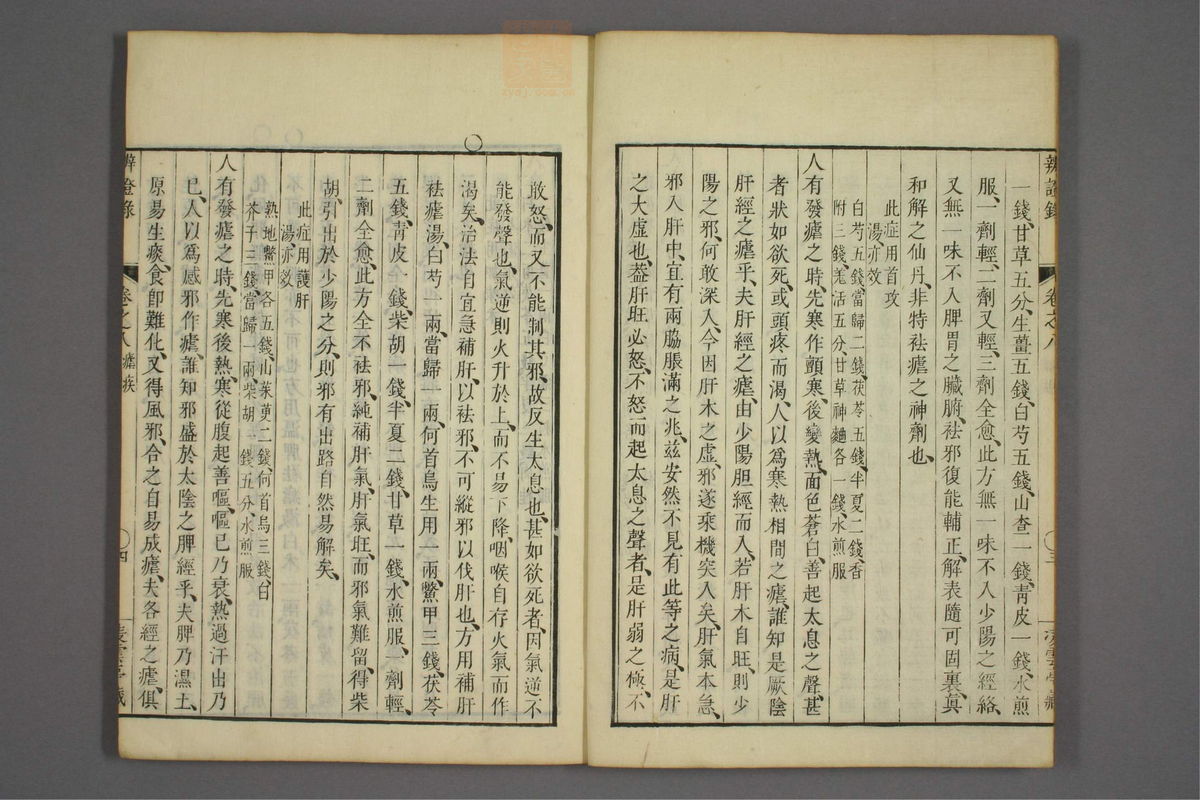 一錢甘草五分生薑五錢白芍五錢山查一錢青皮一錢水煎
服一劑輕二劑又輕三劑全愈此方無一味不入少陽之經絡
又無一味不入脾胃之臟腑祛邪復能輔正解表隨可固裏眞
和解之仙丹非特祛瘧之神劑也
此症用首攻
湯亦效
白芍五錢當歸二錢茯苓五錢半夏二錢香
附三錢羌活五分甘草神麯各一錢水煎服
人有發瘧之時先寒作顫寒後變熱面色蒼白善起太息之聲甚
者狀如欲死或頭疼而渴人以爲寒熱相間之瘧誰知是厥陰
肝經之瘧乎夫肝經之瘧由少陽胆經而入若肝木自旺則少
陽之邪何敢深入今因肝木之虛邪遂乘機突入矣肝氣本急
邪入肝中宜有兩脇脹滿之兆茲安然不見有此等之病是肝
之大虛也葢肝旺必怒不怒而起太息之聲者是肝弱之極不
辨證錄
卷之八
三
敢怒而又不能制其邪故反生太息也甚如欲死者因氣逆不
能發聲也氣逆則火升於上而不易下降咽喉自存火氣而作
渴矣治法自宜急補肝以祛邪不可縱邪以伐肝也方用補肝
祛瘧湯白芍一兩當歸一兩何首烏生用一兩鱉甲三錢茯苓
五錢青皮一錢柴胡一錢半夏二錢甘草一錢水煎服一劑輕
二劑全愈此方全不祛邪純補肝氣肝氣旺而邪氣難留得柴
胡引出於少陽之分則邪有出路自然易解矣
此症用護肝
湯亦效
熟地鱉甲各五錢山茱萸二錢何首烏三錢白
芥子三錢當歸一兩柴胡一錢五分水煎服
人有發瘧之時先寒後熱寒從腹起善嘔嘔已乃衰熱過汗出乃
已人以爲感邪作瘧誰知邪盛於太陰之脾經乎夫脾乃濕土
原易生痰食卽難化又得風邪合之自易成瘧夫各經之瘧俱
辨證錄
卷之八 瘧疾
四